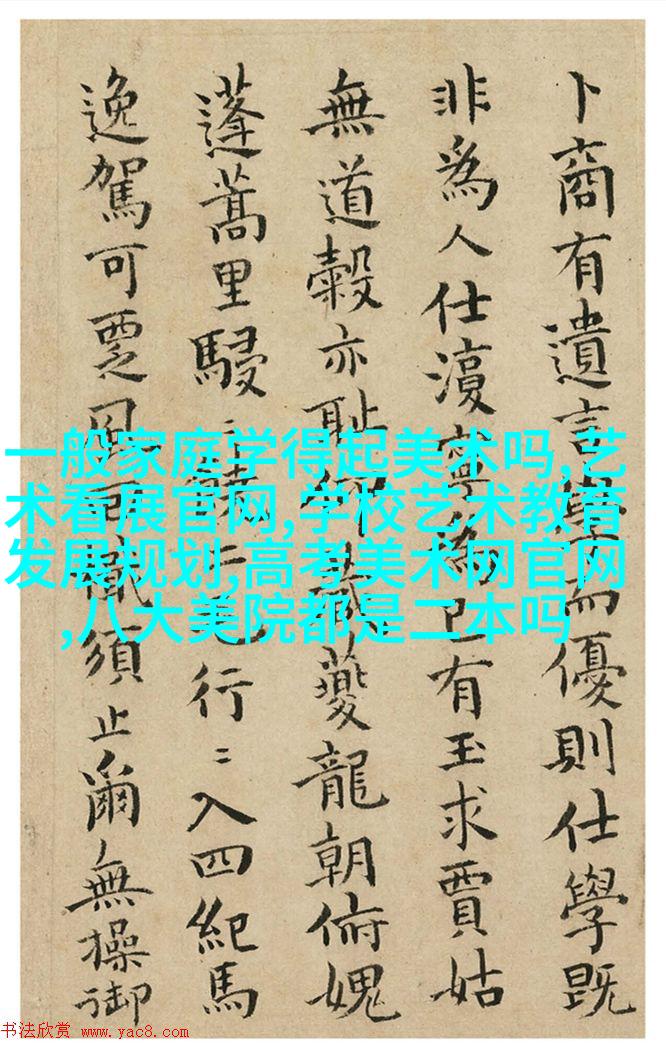 卜商有遺言學而優則仕學既
非爲人仕寧爲己有玉求賈姑
無道穀亦恥仰夔龍朝俯媿
蓬蒿里駸〻行〻入四紀馬
逸駕可覂風須止爾無操御
一般家庭学得起美术吗,艺
术看展官网,学校艺术教育
发展规划,高考美术网官网
,八大美院都是二本吗
书法欣赏 www.yac8.com